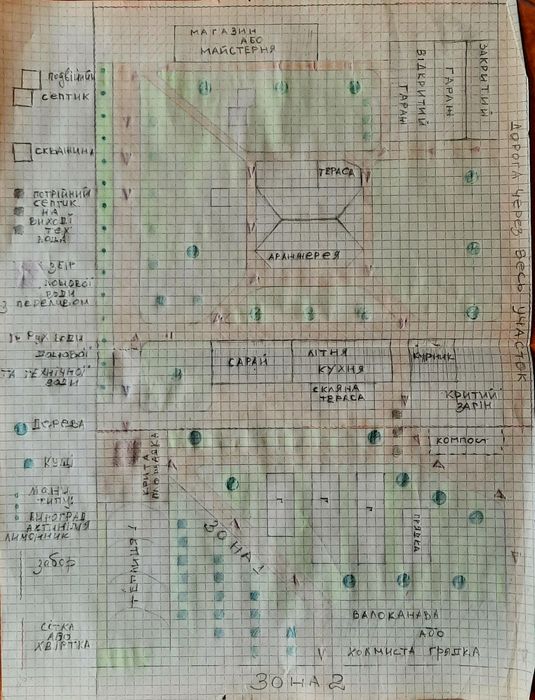 МАГАЗИН
АБО
МАЙСТЕРНЯ
ПОДВІЙНИЙ
СЕПТИК
СКВАЖИНА
ПОТРІЙНИЙ
СЕПТИК
НА
ВИХОДІ
ТЕХ
ВОДА
ЗБІР
З ПЕРЕЛИВОМ
ТА ТЕХНІЧНОЇ
ВОДИ
ДЕРЕВА
КУЩІ
ВИНОГРАД
АКТИНІДІЯ
ЛИМОННИК
ЗАБОР
СІТКА
АБО
ХВІРТКА
ВІДКРИТИЙ
ГАРАЖ
ЗАКРИТИЙ
ГАРАЖ
ДОРОГА ЧЕРЕЗ ВЕСЬ УЧАСТОК
ТЕРАСА
АРАНЖЕРЕЯ
САРАЙ
ЛІТНЯ
КУХНЯ
СКЛЯНА
ТЕРАСА
КУРНИК
КРИТИЙ
ЗАГІН
КОМПОСТ
КРИТА
ПЛОЩАДКА
ТЕПЛИЦЯ
ЗОНА 1
ГРЯДКА
ВАЛОКАНАВА
АБО
ХОЛМИСТА ГРЯДКА
ЗОНА 2